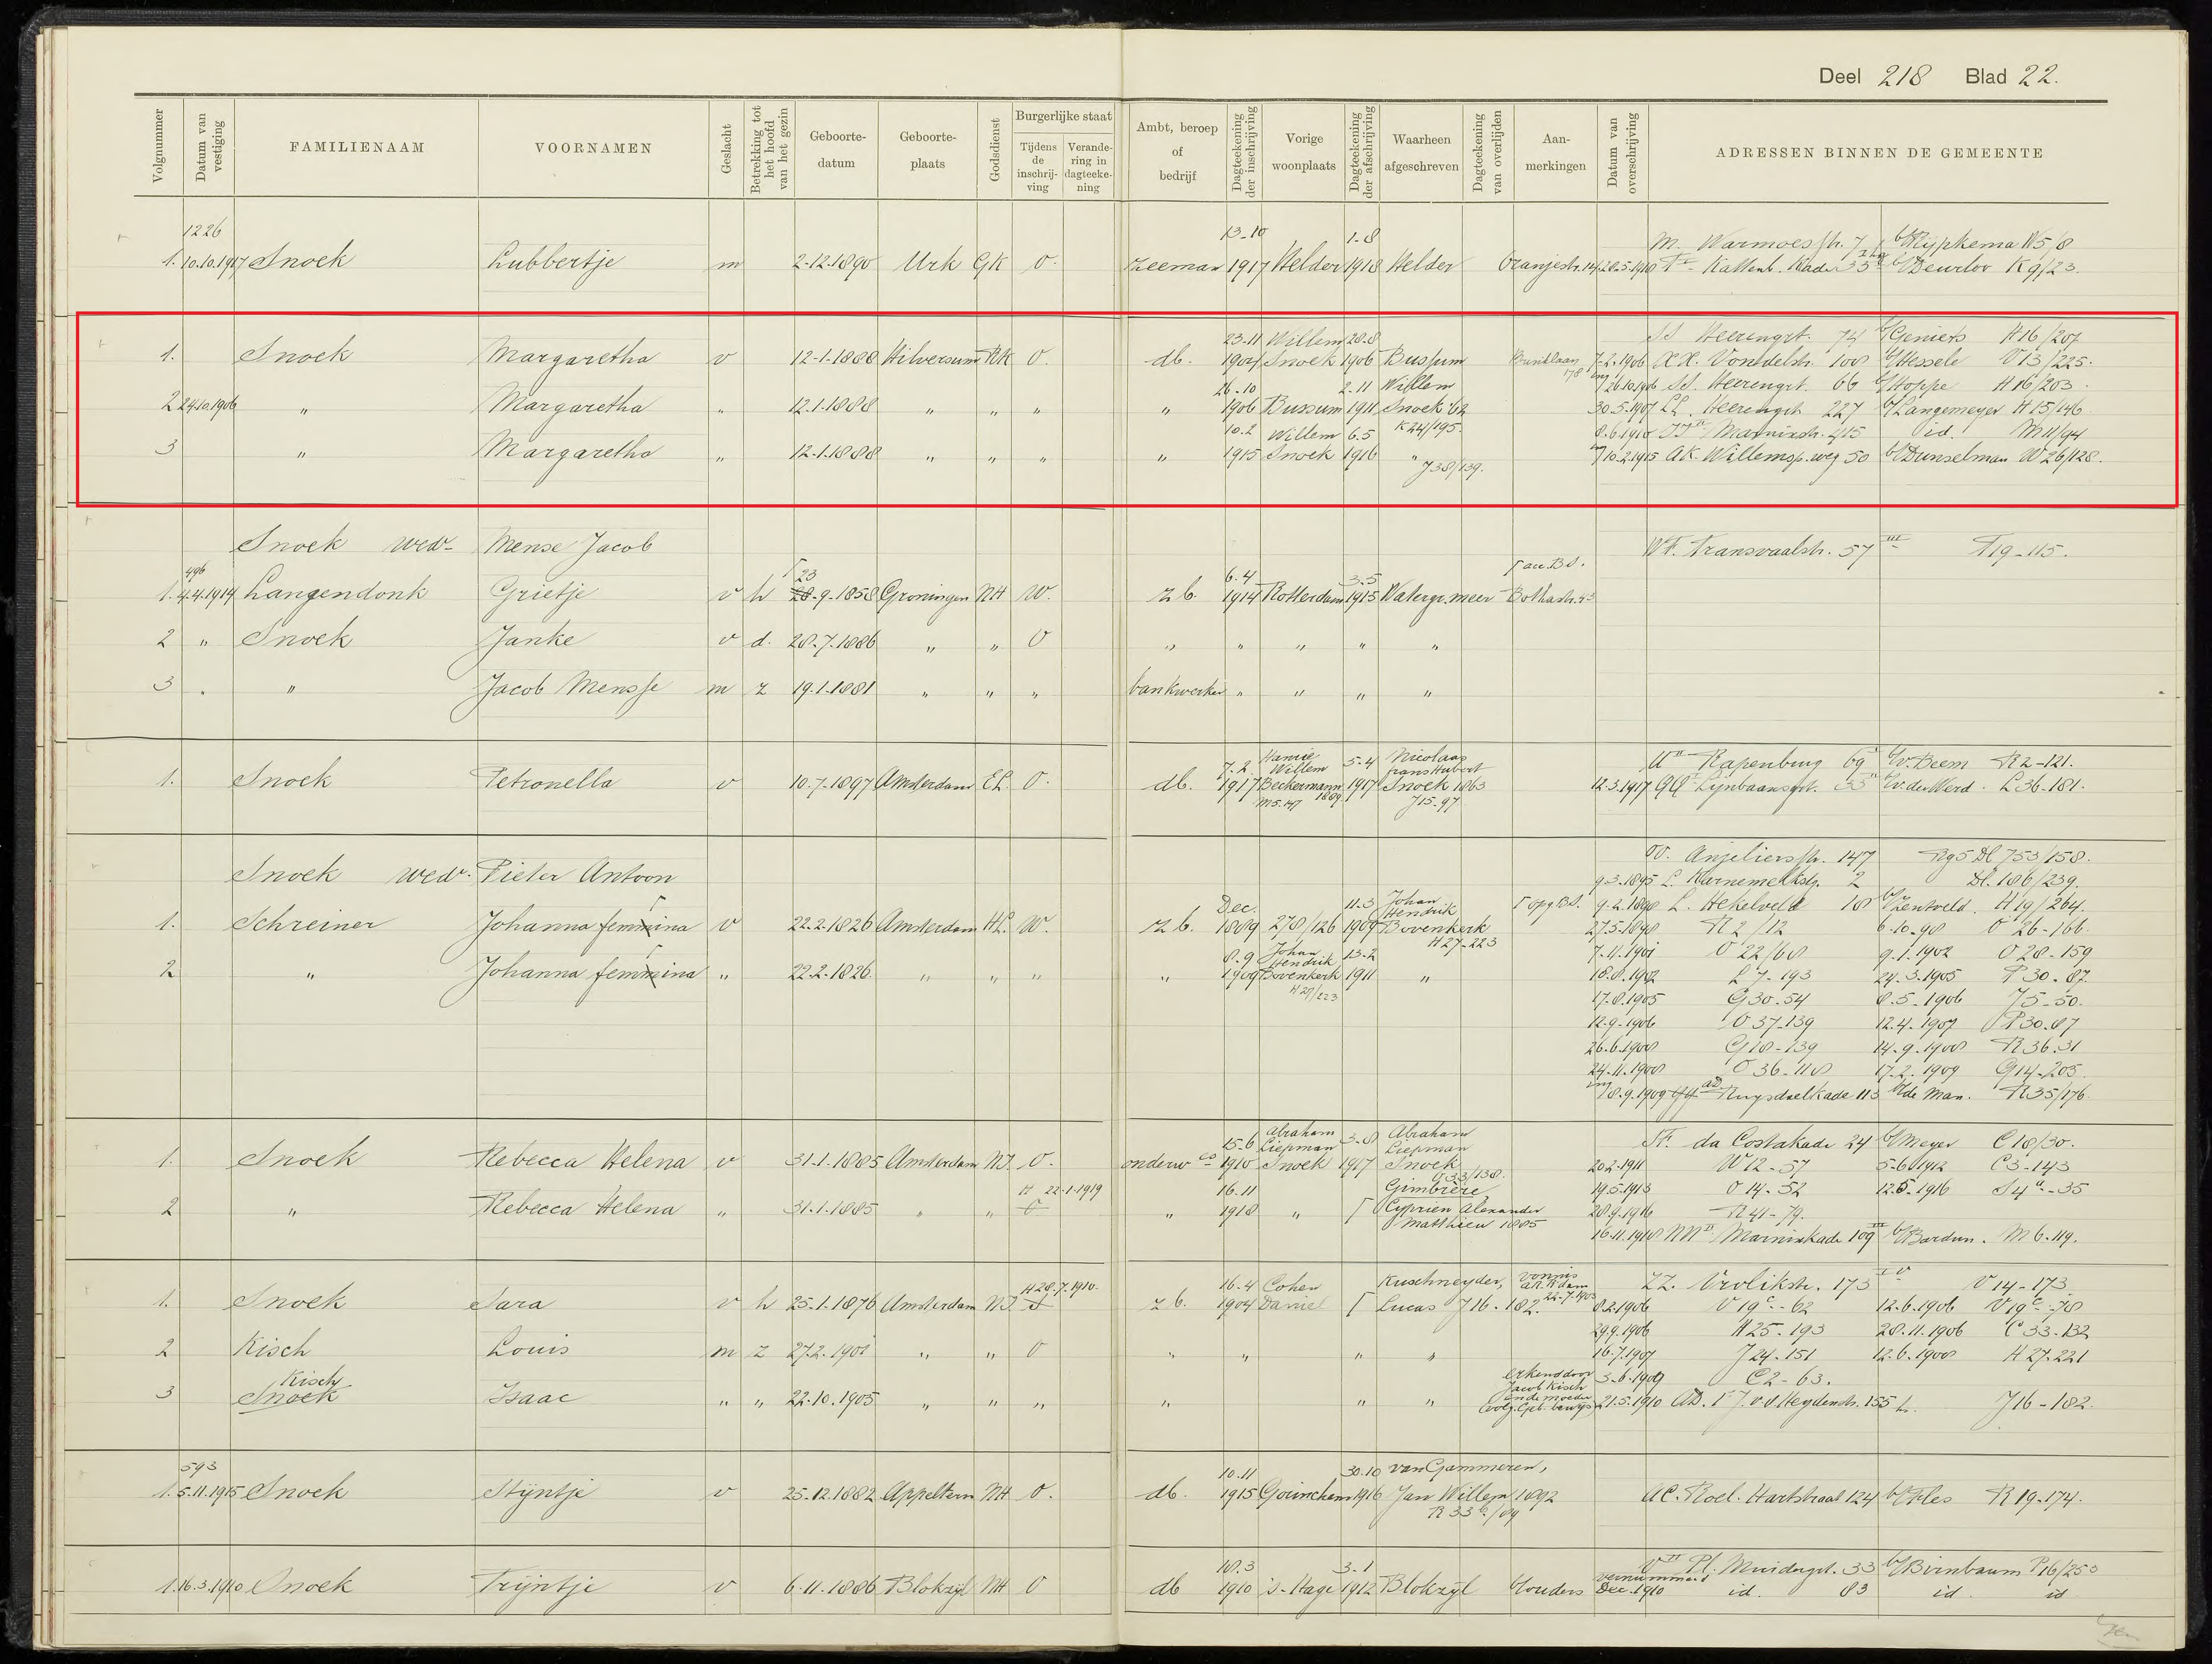 Deel 218 Blad 22.
Volgnummer
Datum van vestiging
FAMILIENAAM
VOORNAMEN
Geslacht
Betrekking tot het hoofd van het gezin
Geboorte-datum
Geboorte-plaats
Godsdienst
Burgerlijke staat
Tijdens de inschrij-ving
Verande-ring in dagteeke-ning
Ambt, beroep of bedrijf
Dagteekening der inschrijving
Vorige woonplaats
Dagteekening der afschrijving
Waarheen afgeschreven
Dagteekening van overlijden
Aan-merkingen
Datum van overschrijving
ADRESSEN BINNEN DE GEMEENTE
1226 13-10 1-8 M. Warmoesstr. 7 b/Rijpkema N5/8
1. 10.10.1917 Snoek Lubbertje m 2-12-1890 Urk GK O. zeeman 1917 Helder 1918 Helder Oranjestr. 14 28.5.1918 Kattenb. Kade 33 b/Deurloo K9/23.
23-11 Willem 28.8 SS Heerengrt. 74 b/Geniets H16/207
1. Snoek Margaretha v 12-1-1888 Hilversum RK O. db. 1904 Snoek 1906 Bussum 178 7-2.1906 XX. Vondelstr. 100 b/Hessele V13/225.
26.10 2.11 Willem 26.10.1906 SS. Heerengrt. 66 b/Hoppe H16/203.
2 24.10.1906 " Margaretha " 12.1.1888 " " " " 1906 Bussum 1911 Snoek '62 30.5.1907 LL. Heerengrt 227 b/Langemeyer H15/146
10.2 Willem 6.5 K24/195. 8.6.1910 Marnixstr. 415 id. M11/94
3 " Margaretha " 12-1-1888 " " " " 1915 Snoek 1916 " J38/139. 10.2.1915 AK. Willemsp.weg 50 b/Dunselman W26/128.
Snoek wed. Mense Jacob WF. Transvaalstr. 57 III T19-115.
496 23 6.4 3.5
1. 4.4.1914 Langendonk Grietje v h 28.9.1858 Groningen NH W. z b. 1914 Rotterdam 1915 Watergr.meer Bothastr. 43
2 " Snoek Janke v d. 28.7.1886 " " O " " " " "
3 . " Jacob Mensje m z 19.1.1881 " " " bankwerker " " " "
7.2 Willem 5-4 Nicolaas Frans Hubert Rapenburg 69 b/v.Beem R2-121.
1. Snoek Petronella v 10.7.1897 Amsterdam EL. O. db. 1917 Beckermann 1917 Snoek 1863 12.3.1917 QQ Lijnbaansgrt. 33 b/v.der Werd. L36-181.
M5.47 1889 J15.97
Snoek wed. Pieter Antoon Anjeliersstr. 147 Rg5 Dl 753/158.
9.3.1895 L. Karnemelkstg. 2 Dl. 186/239.
Dec. 11.3 Johan Hendrik 9-2.1898 L. Hekelveld 18 H19/264.
1. Schreiner Johanna femmina v 22.2.1826 Amsterdam HL. W. z b. 1889 278/126 1909 Bovenkerk 27.5.1898 R2/12 6.10.98 O 26-166.
H27-223 7.11.1901 O 22/68 9.1.1902 O28-159
8.9 Johan Hendrik 13-2
2 " Johanna femmina " 22.2-1826. " " " " 1909 Bovenkerk 1911 " 18.8.1902 L7-193 24.3.1905 P30.87.
H27/223 17.8.1905 G30.54 8.5.1906 J5-50.
12.9.1906 O37-139 12.4.1907 P30.87
26.6.1908 G18-139 14.9.1908 R36.31
24.11.1908 O36.118 17.2.1909 G14-205
8.9.1909 Ruysdaelkade 113 b/de Man. R35/176
15-6 Abraham Liepman 3-8 Abraham Liepman da Costakade 24 b/Meyer C18/30.
1. Snoek Rebecca Helena v 31.1.1885 Amsterdam NI. O. onderw 1910 Snoek 1917 Snoek 20.2.1911 W12-57 5-6.1912 C3-143
H 22-1-1919 16.11 G33/138. Gimbrère, 19.5.1913 O14-52 12.5.1916 S4-35
2 " Rebecca Helena " 31.1.1885 " " O " 1918 " Cyprien Alexander Matthieu 1885 28.9.1916 R41-79.
16.11.1918 NN Marnixkade 109 b/Bardun. M6-119.
H 28.7.1910. 16.4 Cohen Kuschneyder, vonnis 22-7-1903 ZZ. Vrolikstr. 173 V14-173
1. Snoek Sara v h 25.1.1876 Amsterdam NI. z b. 1904 Daniel Lucas J16-182. 8.2.1906 V19-62 12.6.1906 V19-78
29.9.1906 N25-193 28.11.1906 C33-132
2 Kisch Louis m z 27.2.1901 " " O " " " " 16.7.1907 J24-151 12.6.1908 H27.221
Kisch erkend door Jacob Kisch 3-6.1909 C2-63.
3 Snoek Isaac " " 22.10.1905 " " " " " " 21.5.1910 AD. 1e J.v.d.Heydenstr. 155 h. J16-182.
593 10.11 30.10 van Gammeren,
1. 5.11.1915 Snoek Stijntje v 25.12.1882 Appeltern NH O. db. 1915 Gorinchem 1916 Jan Willem 1892 AC. Roel. Hartstraat 124 b/Fles R19-174.
18.3 3.1 Pl. Muidergrt. 33 b/Birnbaum P16/253
1. 16.3.1910 Snoek Trijntje v 6.11.1886 Blokzijl NH O db 1910 's-Hage 1912 Blokzijl b/ouders vernummerd Dec. 1910 id. 83 id. id